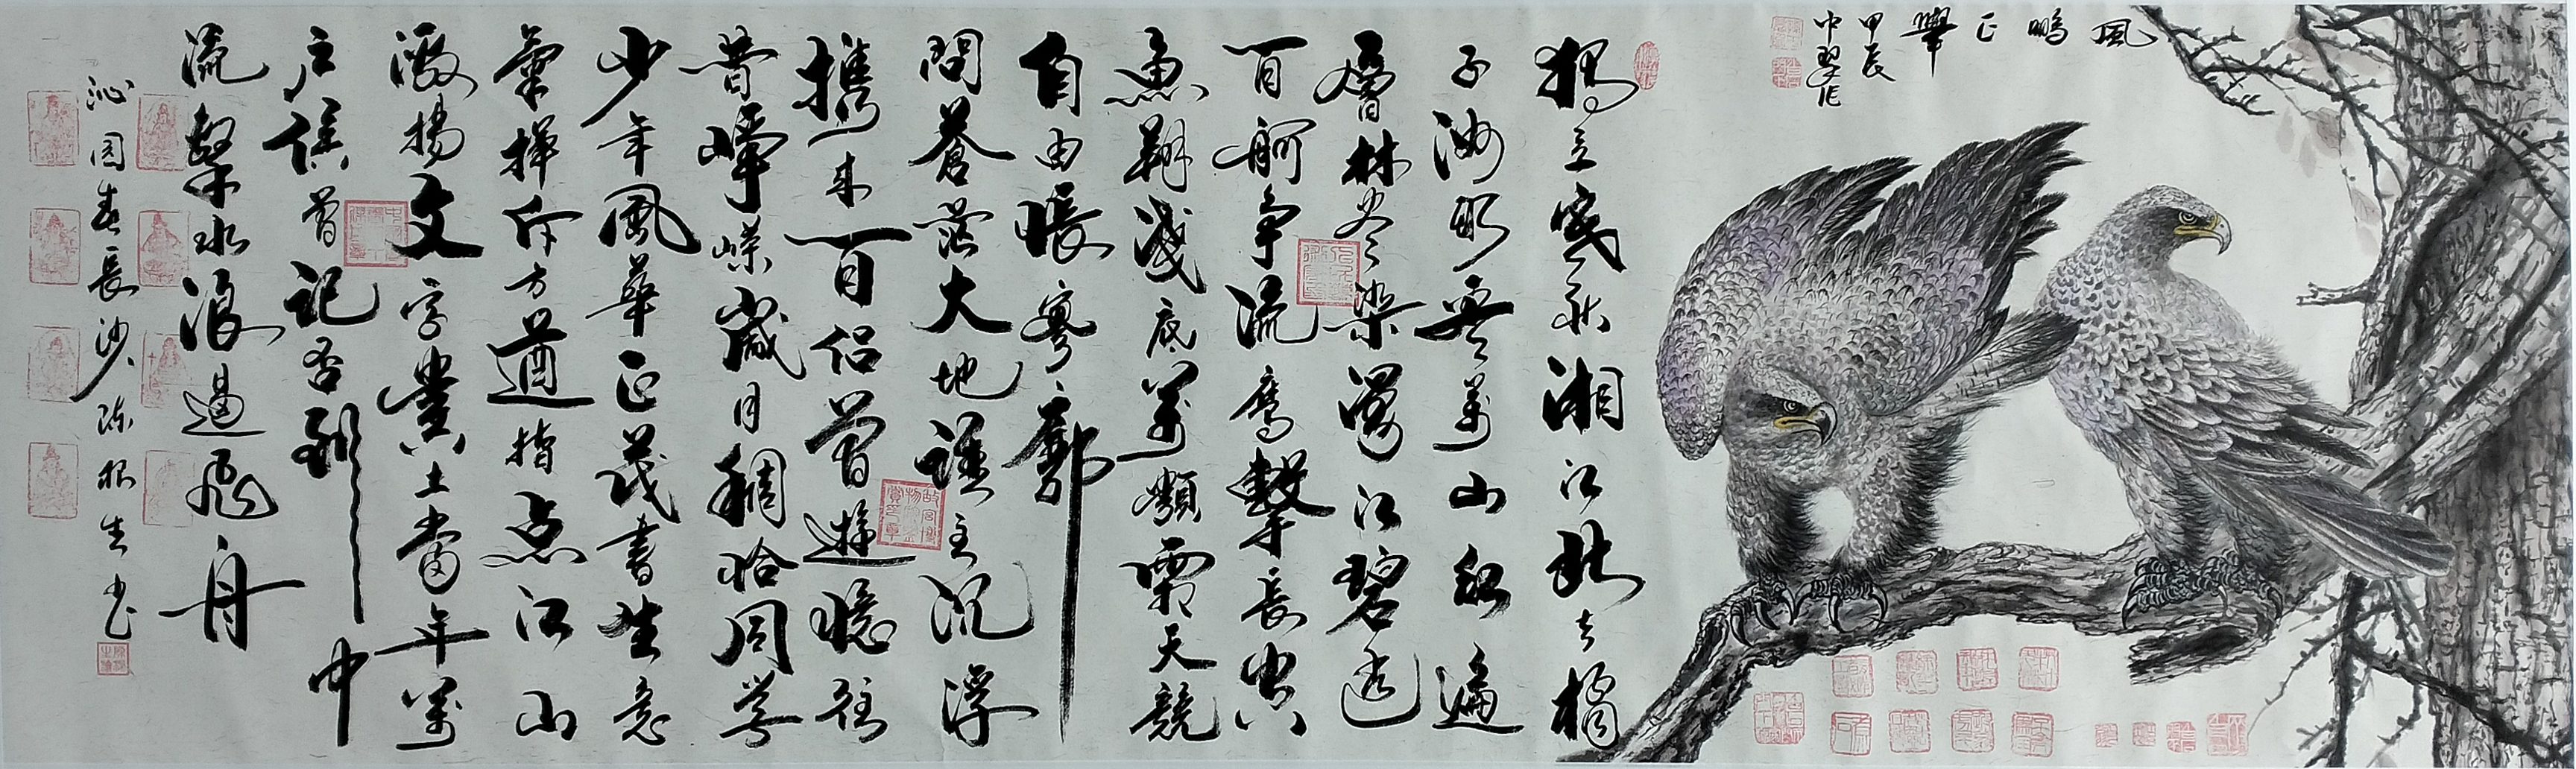 風鵬正舉
甲辰
獨立寒秋湘江北去橘
子洲頭看萬山红遍
層林尽染漫江碧透
百舸争流鹰擊長空
魚翔淺底萬類霜天競
自由悵寥廓
問蒼茫大地誰主沉浮
携来百侣曾遊憶往
昔崢嶸歲月稠恰同学
少年風華正茂書生意
氣揮斥方遒指点江山
激揚文字糞土當年萬
户侯曾記否到中
流擊水浪遏飛舟
沁园春長沙 陈根生书